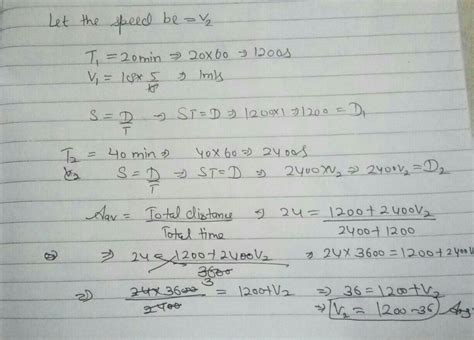 Let the speed be = V₂
T₁ = 20min ⇒ 20×60 ⇒ 1200s
V₁ = 18× 5/18 ⇒ 1m/s
S = D/T ⇒ ST=D ⇒ 1200×1 ⇒ 1200 = D₁
T₂ = 40min ⇒ 40×60 ⇒ 2400s
S = D/T ⇒ ST=D ⇒ 2400×V₂ ⇒ 2400V₂ = D₂
Aav = Total distance/Total time ⇒ 24 = 1200+2400V₂/2400+1200
⇒ ⇒ 24 = 1200+2400V₂/3600 ⇒ 24×3600 = 1200+2400V₂
⇒ 24×3600/2400 3 = 1200+V₂ ⇒ 36 = 1200+V₂
⇒ V₂ = 1200-36 Ans